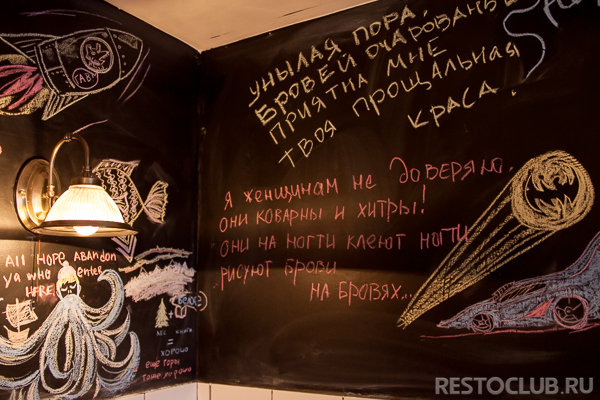 УНЫЛАЯ ПОРА.
БРОВЕЙ ОЧАРОВАНЬЕ
ПРИЯТНА МНЕ
ТВОЯ ПРОЩАЛЬНАЯ
КРАСА.
Я ЖЕНЩИНАМ НЕ ДОВЕРЯЮ.
ОНИ КОВАРНЫ И ХИТРЫ!
ОНИ НА НОГТИ КЛЕЮТ НОГТИ
РИСУЮТ БРОВИ
НА БРОВЯХ...
All HOPE ABANDON
ya who enter
HERE!
ЛЕС
КНИГИ
=
ХОРОШО
ЕЩЁ ГОРЫ
ТОЖЕ ХОРОШО
RESTOCLUB.RU